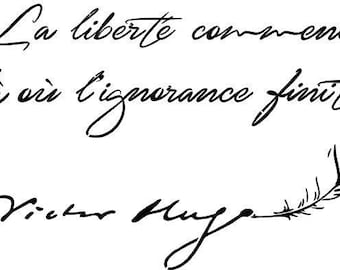 La liberté commen
où l'ignorance finit
Victor Hugo